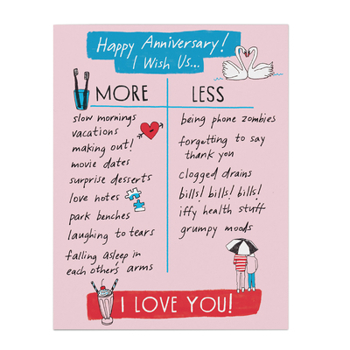 Happy Anniversary!
I Wish Us...
MORE
slow mornings
vacations
making out!
movie dates
surprise desserts
love notes
park benches
laughing to tears
falling asleep in
each others arms
LESS
being phone zombies
forgetting to say
thank you
clogged drains
bills! bills! bills!
iffy health stuff
grumpy moods
I LOVE YOU!